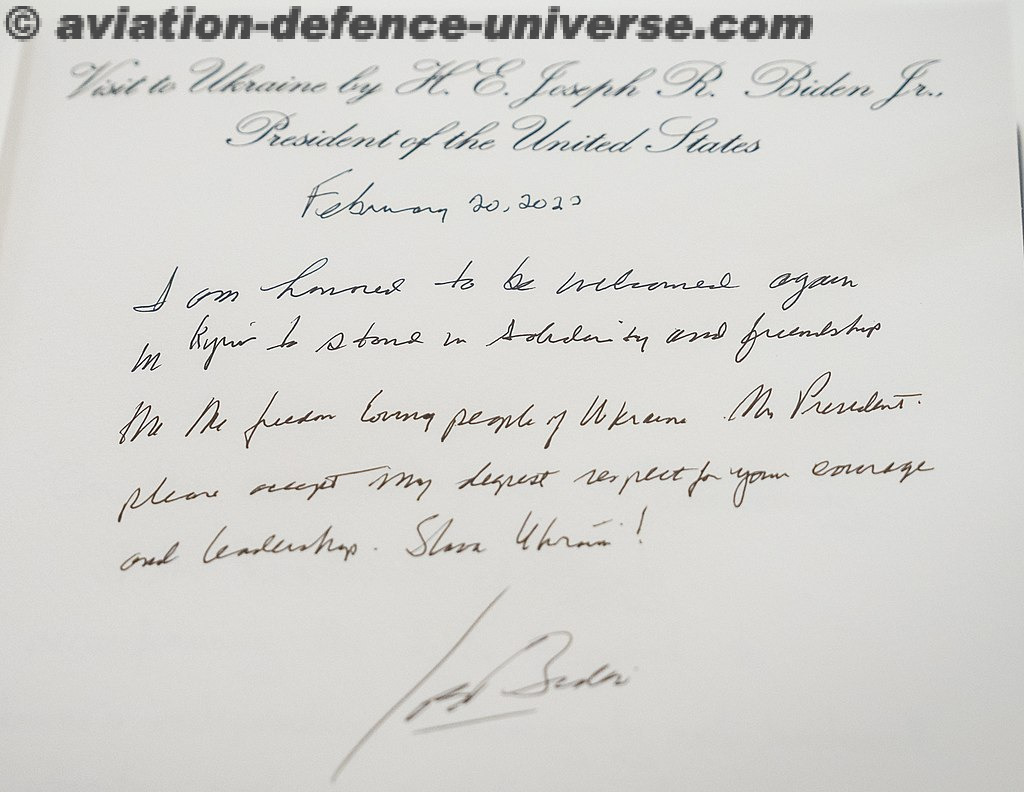 © aviation-defence-universe.com
Visit to Ukraine by H. E. Joseph R. Biden Jr.,
President of the United States
February 20, 2023
I am honored to be welcomed again
in Kyiv to stand in solidarity and friendship
the freedom loving people of Ukraine. Mr President.
please accept my deepest respect for your courage
and leadership. Slava Ukraini!
Joe Biden